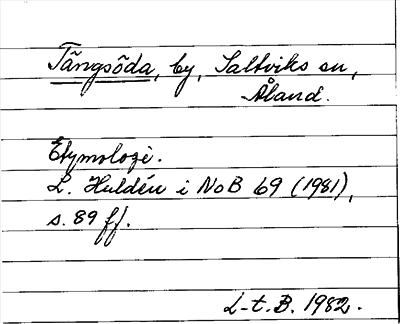 Tängsöda, by, Saltviks sn,
Åland.
Etymologi.
L. Huldén i NoB 69 (1981),
s. 89 ff.
L-t. B. 1982.